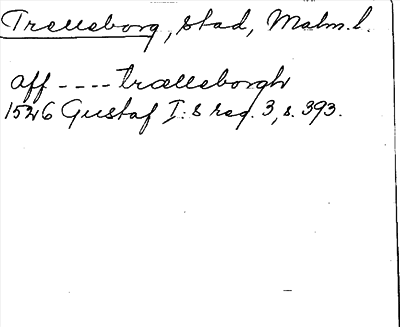 Trelleborg, stad, Malm.l.
aff ---- trælleborgh
1526 Gustaf I:s reg. 3, s. 393.